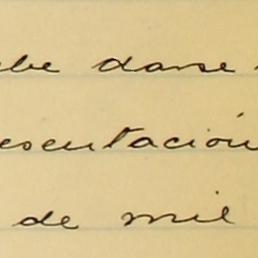 be danse
esentación
de mil